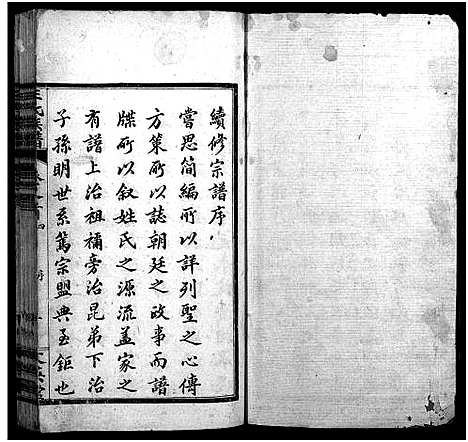 續修宗譜序
嘗思簡編所以詳列聖之心傳
方策所以誌朝廷之政事而譜
牒所以叙姓氏之源流蓋家之
有譜上治祖禰旁治昆弟下治
子孫明世系篤宗盟典至鉅也
氏